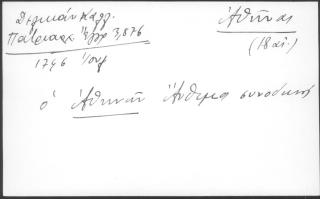 Δελικάν Καλλ.
Πατριαρχ. Ἔγγρ. 3,876
1796 Ἰουλ
Ἀθῆναι
(18 αἰ.)
ὁ Ἀθηνῶν Ἄνθιμος συνοδικός